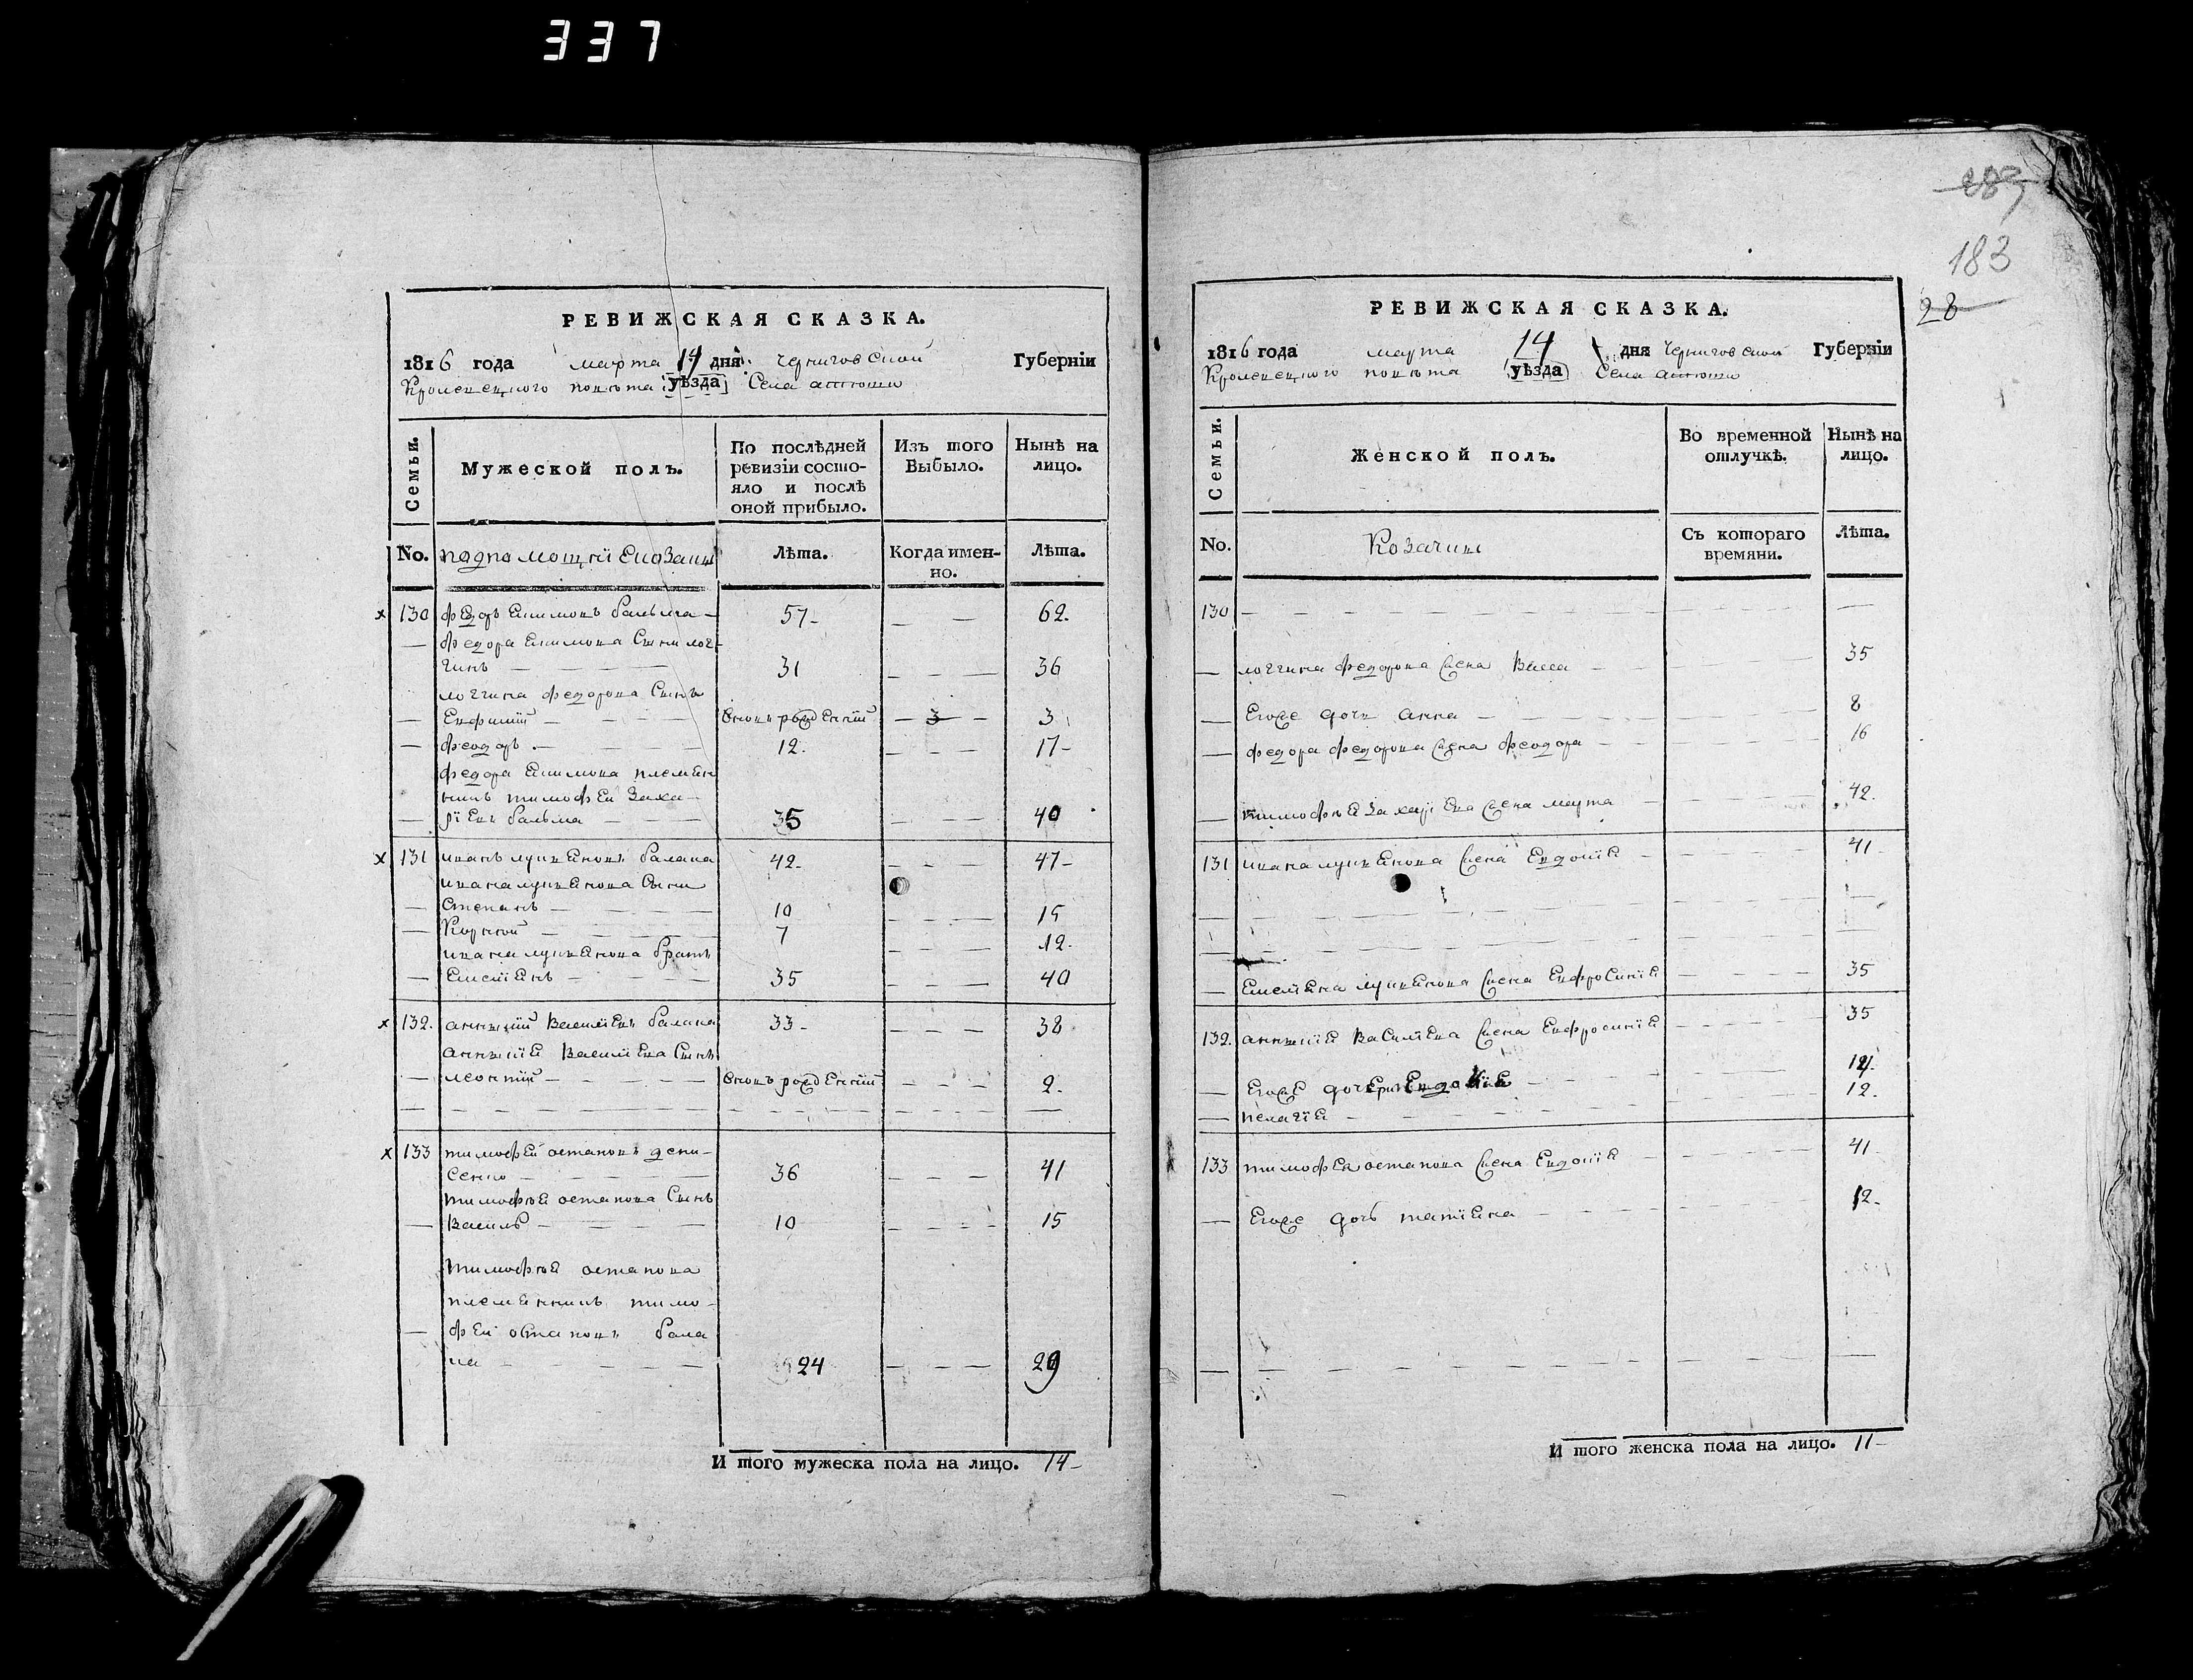 337
РЕВИЖСКАЯ СКАЗКА.
1816 года марта 14 дня Черниговской Губернїи
Кролевецкого повѣта уѣзда Села
Семьи.
Мужеской полъ.
По послѣдней ревизїи состо-
яло и послѣ
оной прибыло.
Изъ того
Выбыло.
Нынѣ на
лицо.
No.
Лѣта.
Когда имен-
но.
Лѣта.
130 Федоръ Екимовъ бальма 57 62.
Федора Екимова Сыни лог-
гинъ 31 36
логгина Федорова Сынъ
Евфимїй вновь рожденнїй 3 3
Феодоръ 12. 17
Федора Екимова племен
никъ тимофей Заха-
рїевъ бальма 35 40
131 иванъ лукьяновъ балака 42. 47
ивана лукьянова Сыни
Степанъ 10 15
Корнѣй 7 12.
ивана лукьянова братъ
Емелїянъ 35 40
132. Василїевъ балака 33 38
Василїева Сынъ
леонтїй вновь рожденнїй 2.
133 тимофей остаповъ дени-
сенко 36 41
тимофѣя остапова Сынъ
Василь 10 15
тимофѣя остапова
племянникъ тимо-
фей остаповъ бала
ка 24 29
И того мужеска пола на лицо. 14
183
28
РЕВИЖСКАЯ СКАЗКА.
1816 года марта 14 дня Черниговской Губернїи
Кролевецкого повѣта уѣзда Села
Семьи.
Женской полъ.
Во временной
отлучкѣ.
Нынѣ на
лицо.
No.
Козачки
Съ котораго
времяни.
Лѣта.
130
логгина Федорова жена Васса 35
Егоже дочь анна 8
Федора Федорова жена Феодора 16
тимофѣя Захарїева жена марта 42.
131 ивана лукьянова жена Евдокїя 41
Емелїяна лукьянова жена Евфросинїя 35
132. Василїева жена Евфросинїя 35
Егоже дочери Евдокїя
пелагїя 12.
133 тимофея остапова жена Евдокїя 41
Егоже дочь татїяна 12
И того женска пола на лицо. 11